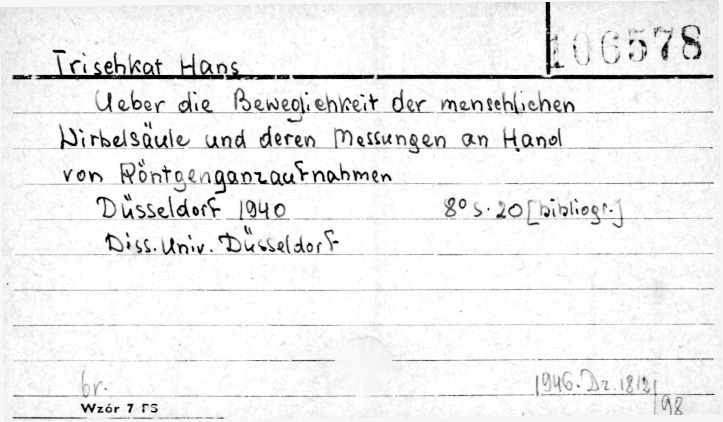 106578
Trischkat Hans
Ueber die Beweglichkeit der menschlichen
Wirbelsäule und deren Messungen an Hand
von Röntgenganzaufnahmen
Düsseldorf 1940 8° s. 20 [bibliogr.]
Diss. Univ. Düsseldorf
br. 1946. Dz. 1812/98
Wzór 7 PS